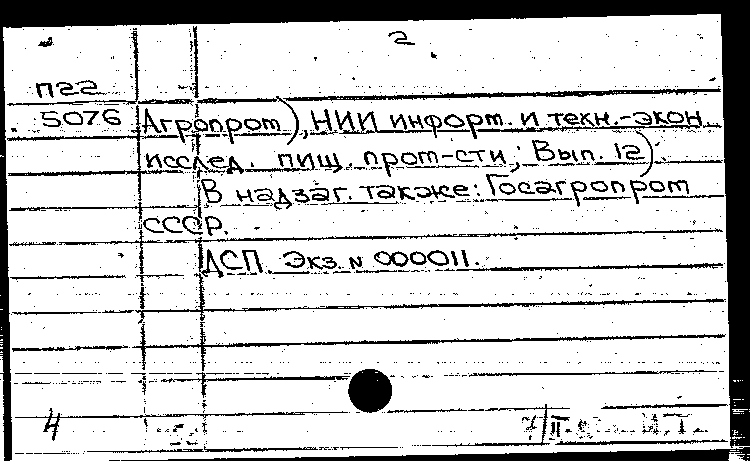 2
П22
5076 Агропром), НИИ информ. и техн.-экон.
исслед. пищ. пром-сти; Вып. 12).
В надзаг. также: Госагропром
СССР.
ДСП. Экз. № 000011.
4